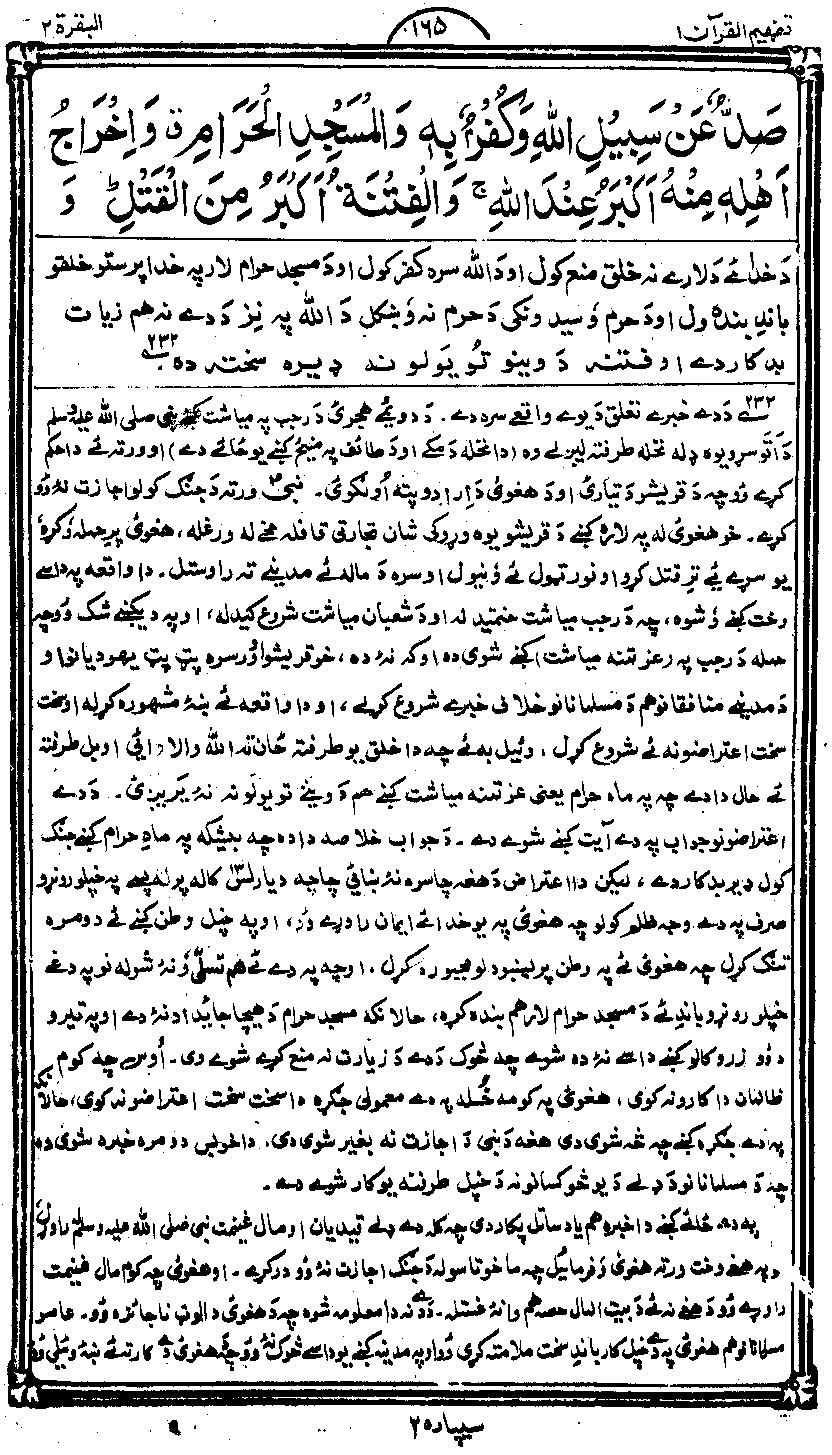 تفهیم القرآن ۱
۱۶۵
البقرة ۲
صَدٌّ عَنْ سَبِيْلِ اللهِ وَكُفْرٌۢ بِهٖ وَالْمَسْجِدِ الْحَرَامِ ق وَاِخْرَاجُ
اَهْلِهٖ مِنْهُ اَكْبَرُ عِنْدَ اللهِ ج وَالْفِتْنَةُ اَكْبَرُ مِنَ الْقَتْلِ ط وَ
دَ خدائے دَ لارے نہ خلق منع کول او دَ الله سره کفر کول او دَ مسجد حرام لار په خدا پرستو خلقو
باندِ بنده ول او دَ حرم وٗسیدونکی دَ حرم نه وٗشکل دَ الله په نیز دَ دے نه هم زیات
بد کار دے او فتنه دَ وینو تویولو نه ډیره سخته ده ۲۳۲
۲۳۲ دَ دے خبرے تعلق دَ یوے واقعے سره دے۔ دَ دوئمے هجریٔ دَ رجب په میاشت کښے نبی صلی الله علیه وسلم
دَ اتو سړو یوه ډله نخله طرفته لیږلے وه (دا نخله دَ مکے او دَ طائف په مینځ کښے یو ځائے دے) او ورته ئے دا حکم
کړے وٗو چه دَ قریشو دَ تیاریٔ او دَ هغویٔ دَ اِرادو پته اولګویٔ۔ نبیؐ ورته دَ جنګ کولو اجازت نهٔ وٗو
کړے۔ خو هغویٔ له په لاره کښے دَ قریشو یوه وړوکی شان تجارتی قافله مخے له ورغله، هغویٔ پرے حمله وکړه
یو سړے یٔے تر قتل کړو او نور ټول ئے وٗنیول او سره دَ ماله ئے مدینے ته راوستل۔ دا واقعه په داسے
وخت کښے وٗشوه، چه دَ رجب میاشت ختمیدله او دَ شعبان میاشت شروع کیدله، او په دیکښے شک وٗو چه
حمله دَ رجب په (عزتمنه میاشت) کښے شوی ده او که نهٔ ده، خو قریشو او ورسره پټ پټ یهودیانو او
دَ مدینے منافقانو هم دَ مسلمانانو خلاف خبرے شروع کړلے، او دا واقعه ئے ښهٔ مشهوره کړله او سخت
سخت اعتراضونه ئے شروع کړل، وئیل به ئے چه دا خلق یو طرفته ځان ته الله والا وائی او بل طرفته
ئے حال دا دے چه په ماه حرام یعنی عزتمنه میاشت کښے هم دَ وینے تویولو نه نهٔ یریږی۔ دَ دے
اعتراضونو جواب په دے آیت کښے شوے دے۔ دَ جواب خلاصه دا ده چه بیشکه په ماهِ حرام کښے جنګ
کول ډیر بد کار دے، لیکن دا اعتراض دَ هغه چا سره نهٔ ښائی چا چه دیارلس۱۳ کاله پرله پسے په خپلو رونړو
صرف په دے وجه ظلم کولو چه هغویٔ په یو خدائے ایمان راوړے وٗو، او په خپل وطن کښے ئے دومره
تنګ کړل چه هغویٔ ئے په وطن پریښودلو مجبوره کړل، او چه په دے ئے هم تسلّی وٗنهٔ شوله نو په دغے
خپلو رونړو باندِ ئے دَ مسجد حرام لار هم بنده کړه، حالانکه مسجد حرام دَ هیچا جائیداد نهٔ دے او په تیرو
دوو زرو کالو کښے داسے نهٔ ده شوے چه څوک دَ دے دَ زیارت نه منع کړے شوے وی۔ اوٗس چه کوم
ظالمان دا کارونه کوی، هغویٔ په کومه خُله په دے معمولی جګړه دا سخت سخت اعتراضونه کوی، حالانکه
په دے جګړه کښے چه څهٔ شوی دی هغه دَ نبی دَ اجازت نه بغیر شوی دی۔ دا خو بس دومره خبره شوی ده
چه دَ مسلمانانو دَ ډلے دَ یو څو کسانو نه دَ خپل طرفنه یو کار شوے دے۔
په دے ځائے کښے دا خبره هم یاد ساتل پکار دی چه کله دے ډلے قیدیان او مال غنیمت نبی صلی الله علیه وسلم له راوړل
په هغے وخت ورته هغویٔ وٗفرمائیل چه ما خو تاسو له دَ جنګ اجازت نهٔ وٗو درکړے۔ او هغویٔ چه کوم مال غنیمت
راوړے وٗو دَ هغے نه ئے دَ بیت المال حصه هم وا نهٔ غستله۔ دَ دے نه دا معلومه شوه چه دَ هغویٔ دا لوټ ناجائزه وٗو۔ عامو
مسلمانانو هم هغویٔ په دے خپل کار باندِ سخت ملامته کړی وٗو او په مدینه کښے یو داسے څوک نهٔ وٗو چه هغویٔ دے کار ته ئے ښهٔ وئیلی وٗو
سیپاره ۲